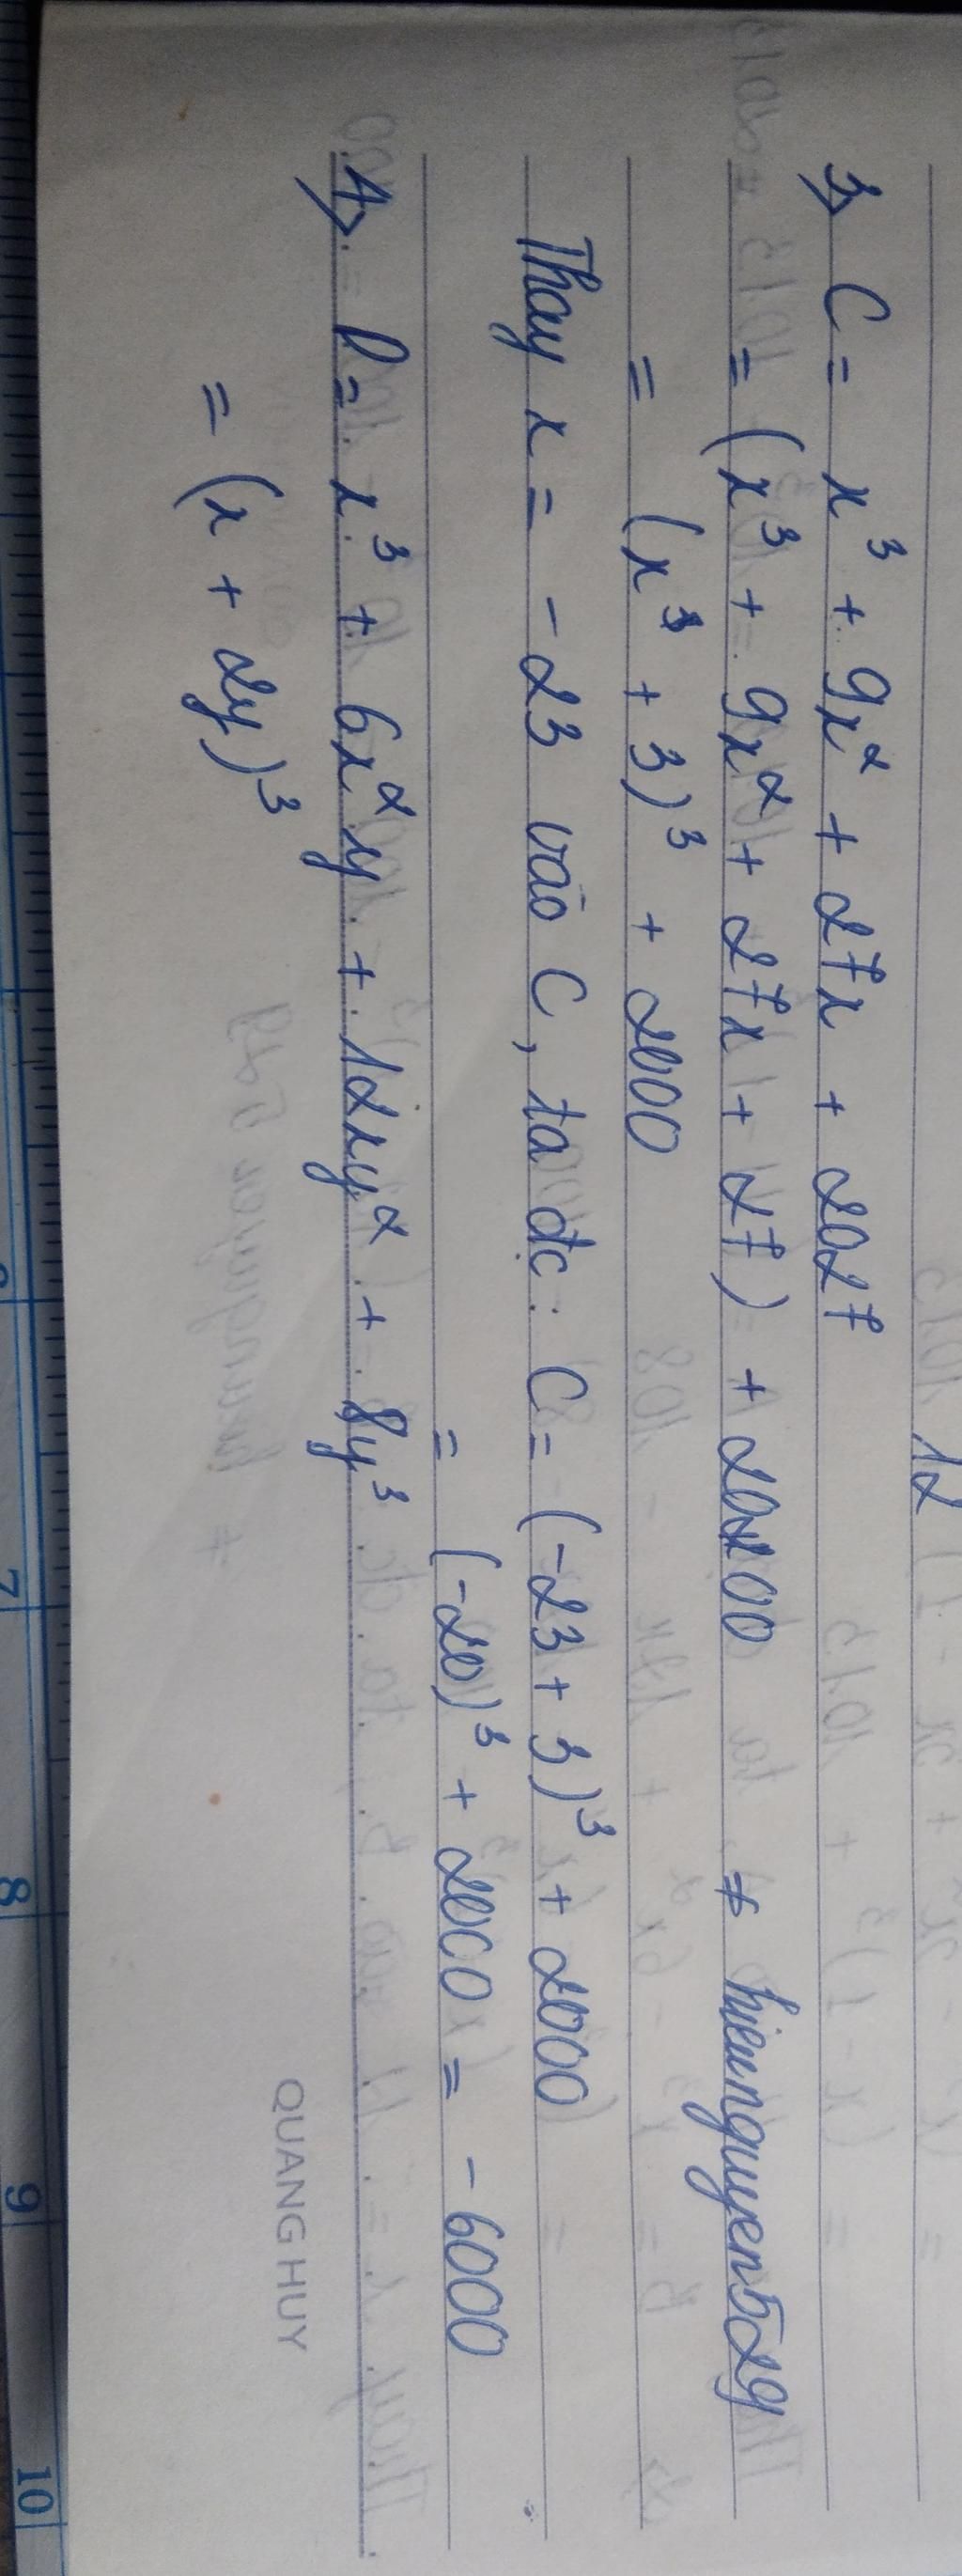 12
3, C = x³ + 9x² + 27x + 2027
= (x³ + 9x² + 27x + 27) + 2000 ≠ hiennguyen529
= (x³ + 3)³ + 2000
Thay x = -23 vào C, ta đc: C = (-23 + 3)³ + 2000
= (-20)³ + 2000 = -6000
4, D = x³ + 6x²y + 12xy² + 8y³
= (x + 2y)³
QUANG HUY
7 8 9 10